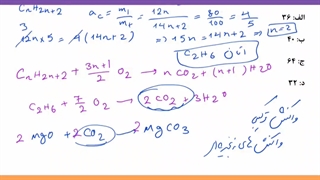 CnH2n+2   ac = m1/mT = 12n/14n+2 = 80/100 = 4/5
3
12n×5 = 4(14n+2) → 15n = 14n+2 → n=2
اتان C2H6
CnH2n+2 + 3n+1/2 O2 → nCO2 + (n+1)H2O
C2H6 + 7/2 O2 → 2CO2 + 3H2O
2 MgO + 2CO2 → 2MgCO3
واکنش ترکیبی
واکنش های زنجیره‌ای
الف: ۳۶
ب: ۴۰
ج: ۶۴
د: ۳۲